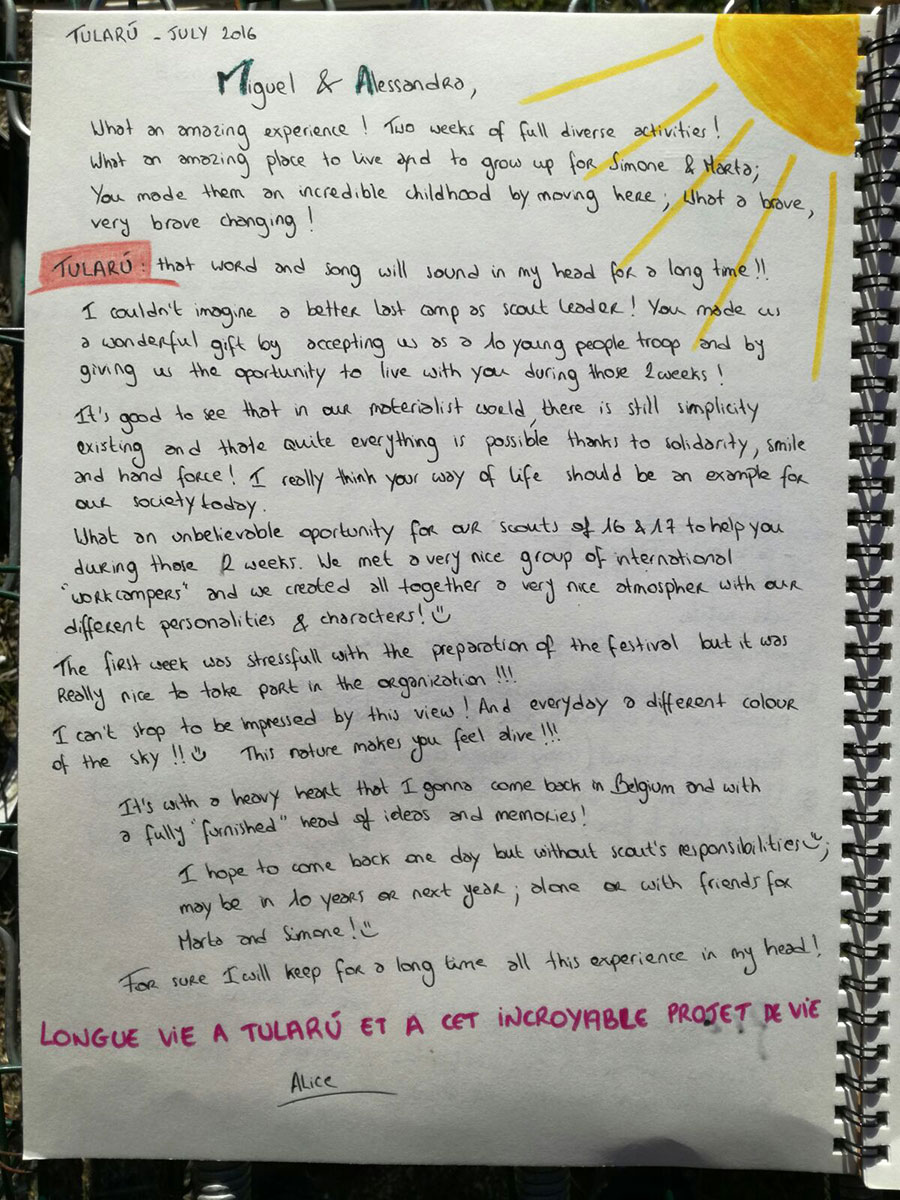 TULARÚ - JULY 2016
Miguel & Alessandra,
What an amazing experience ! Two weeks of full diverse activities !
What an amazing place to live and to grow up for Simone & Marta;
You made them an incredible childhood by moving here ; What a brave,
very brave changing !
TULARÚ : that word and song will sound in my head for a long time !!
I couldn't imagine a better last camp as scout leader ! You made us
a wonderful gift by accepting us as a 10 young people troop and by
giving us the oportunity to live with you during those 2 weeks !
It's good to see that in our materialist world, there is still simplicity
existing and thate quite everything is possible thanks to solidarity, smile
and hand force ! I really think your way of life should be an example for
our society today.
What an unbelievable oportunity for our scouts of 16 & 17 to help you
during those 2 weeks. We met a very nice group of international
"workcampers" and we created all together a very nice atmospher with our
different personalities & characters ! ☺
The first week was stressfull with the preparation of the festival but it was
really nice to take part in the organization !!!
I can't stop to be impressed by this view ! And everyday a different colour
of the sky !! ☺ This nature makes you feel alive !!!
It's with a heavy heart that I gonna come back in Belgium and with
a fully "furnished" head of ideas and memories !
I hope to come back one day but without scout's responsibilities ☺;
may be in 10 years or next year ; alone or with friends for
Marta and Simone ! ☺
For sure I will keep for a long time all this experience in my head !
LONGUE VIE A TULARÚ ET A CET INCROYABLE PROJET DE VIE
Alice